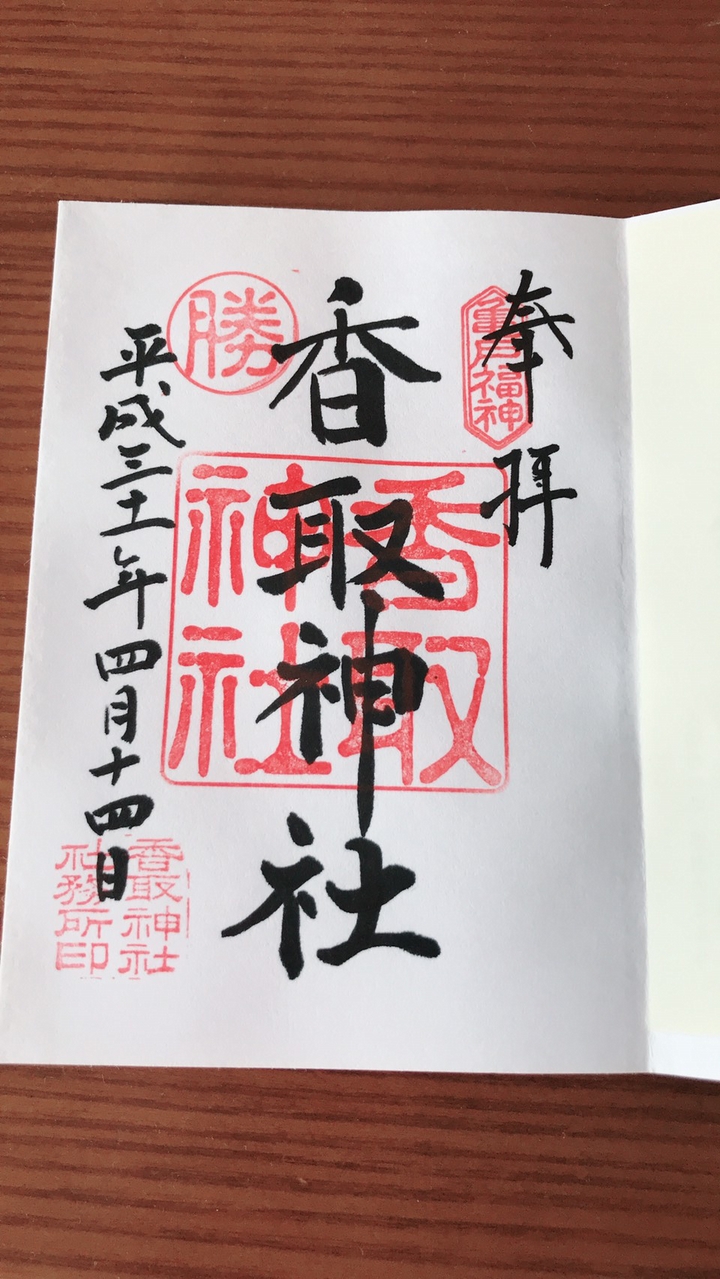 奉拝
亀戸福神
香取神社
香取神社
勝
平成三十一年四月十四日
香取神社
社務所印